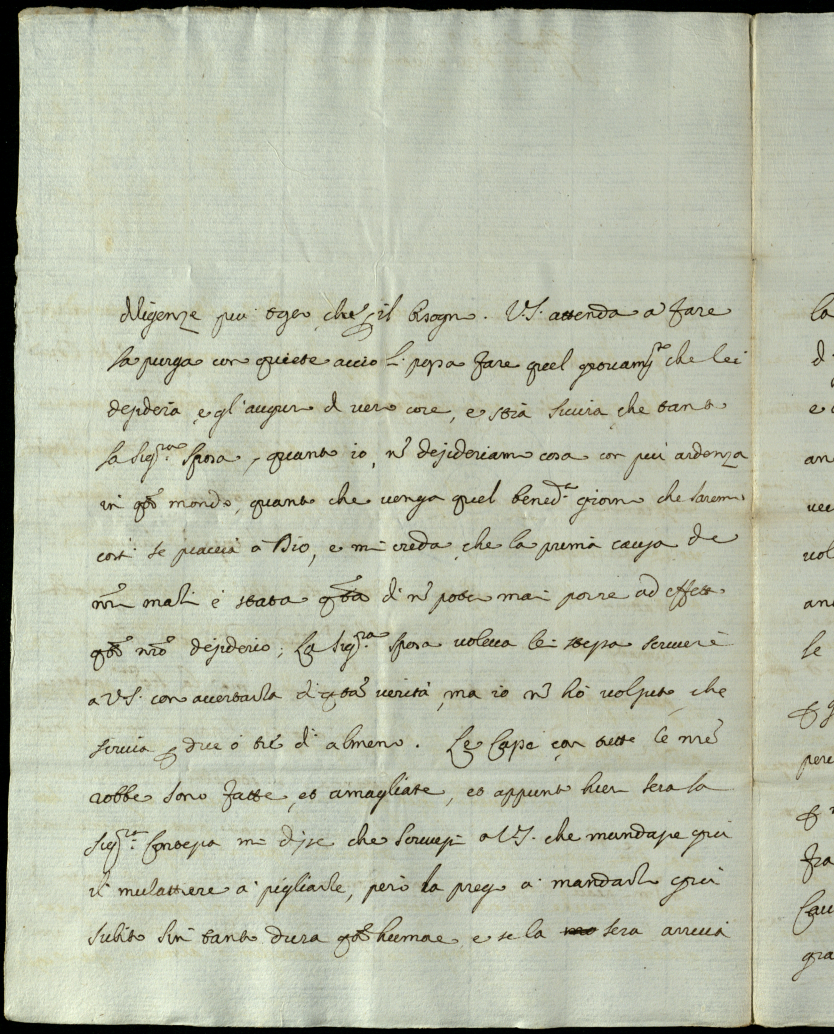 diligenze più ogni che p il bisogno. V.S. attenda a fare
la purga con quiete acciò li possa fare quel giovam.to che lei
desidera, e gl'auguro di vero core, e stia sicura, che tanto
la Sig.ra Sposa, quanto io, nō desideriamo cosa con più ardenza
in qto mondo, quanto che venga quel bened.to giorno che saremo
costì se piaccia à Dio, e mi creda, che la prima causa de
nri mali è stata qta di nō poter mai porre ad effetto
qto nro desiderio; La Sig.ra Sposa voleva lei stessa scrivere
a V.S. con accertarla di qta verità, ma io nō hò volsuto, che
scrivia p due ò trè dì almeno. Le Casse con tutte le nre
robbe sono fatte, et amagliate, et appunto hier sera la
Sig.ra Contessa mi disse che scrivessi a V.S. che mandasse quà
il mulattiere a pigliarle, però la prego a mandarlo quà
subito sin tanto dura qto e se la sera arrivà
la
d
e
an
ve
vol
an
se
per
fra
Cau
gra